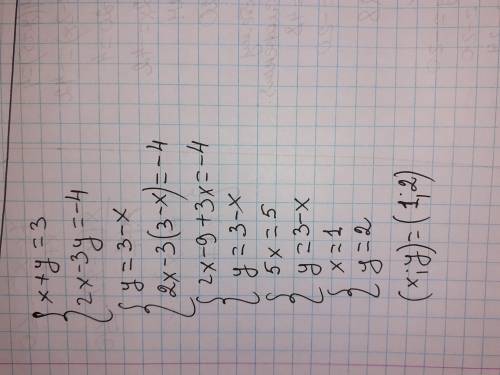 x+y=3
2x-3y=-4
y=3-x
2x-3(3-x)=-4
2x-9+3x=-4
y=3-x
5x=5
y=3-x
x=1
y=2
(x;y)=(1;2)